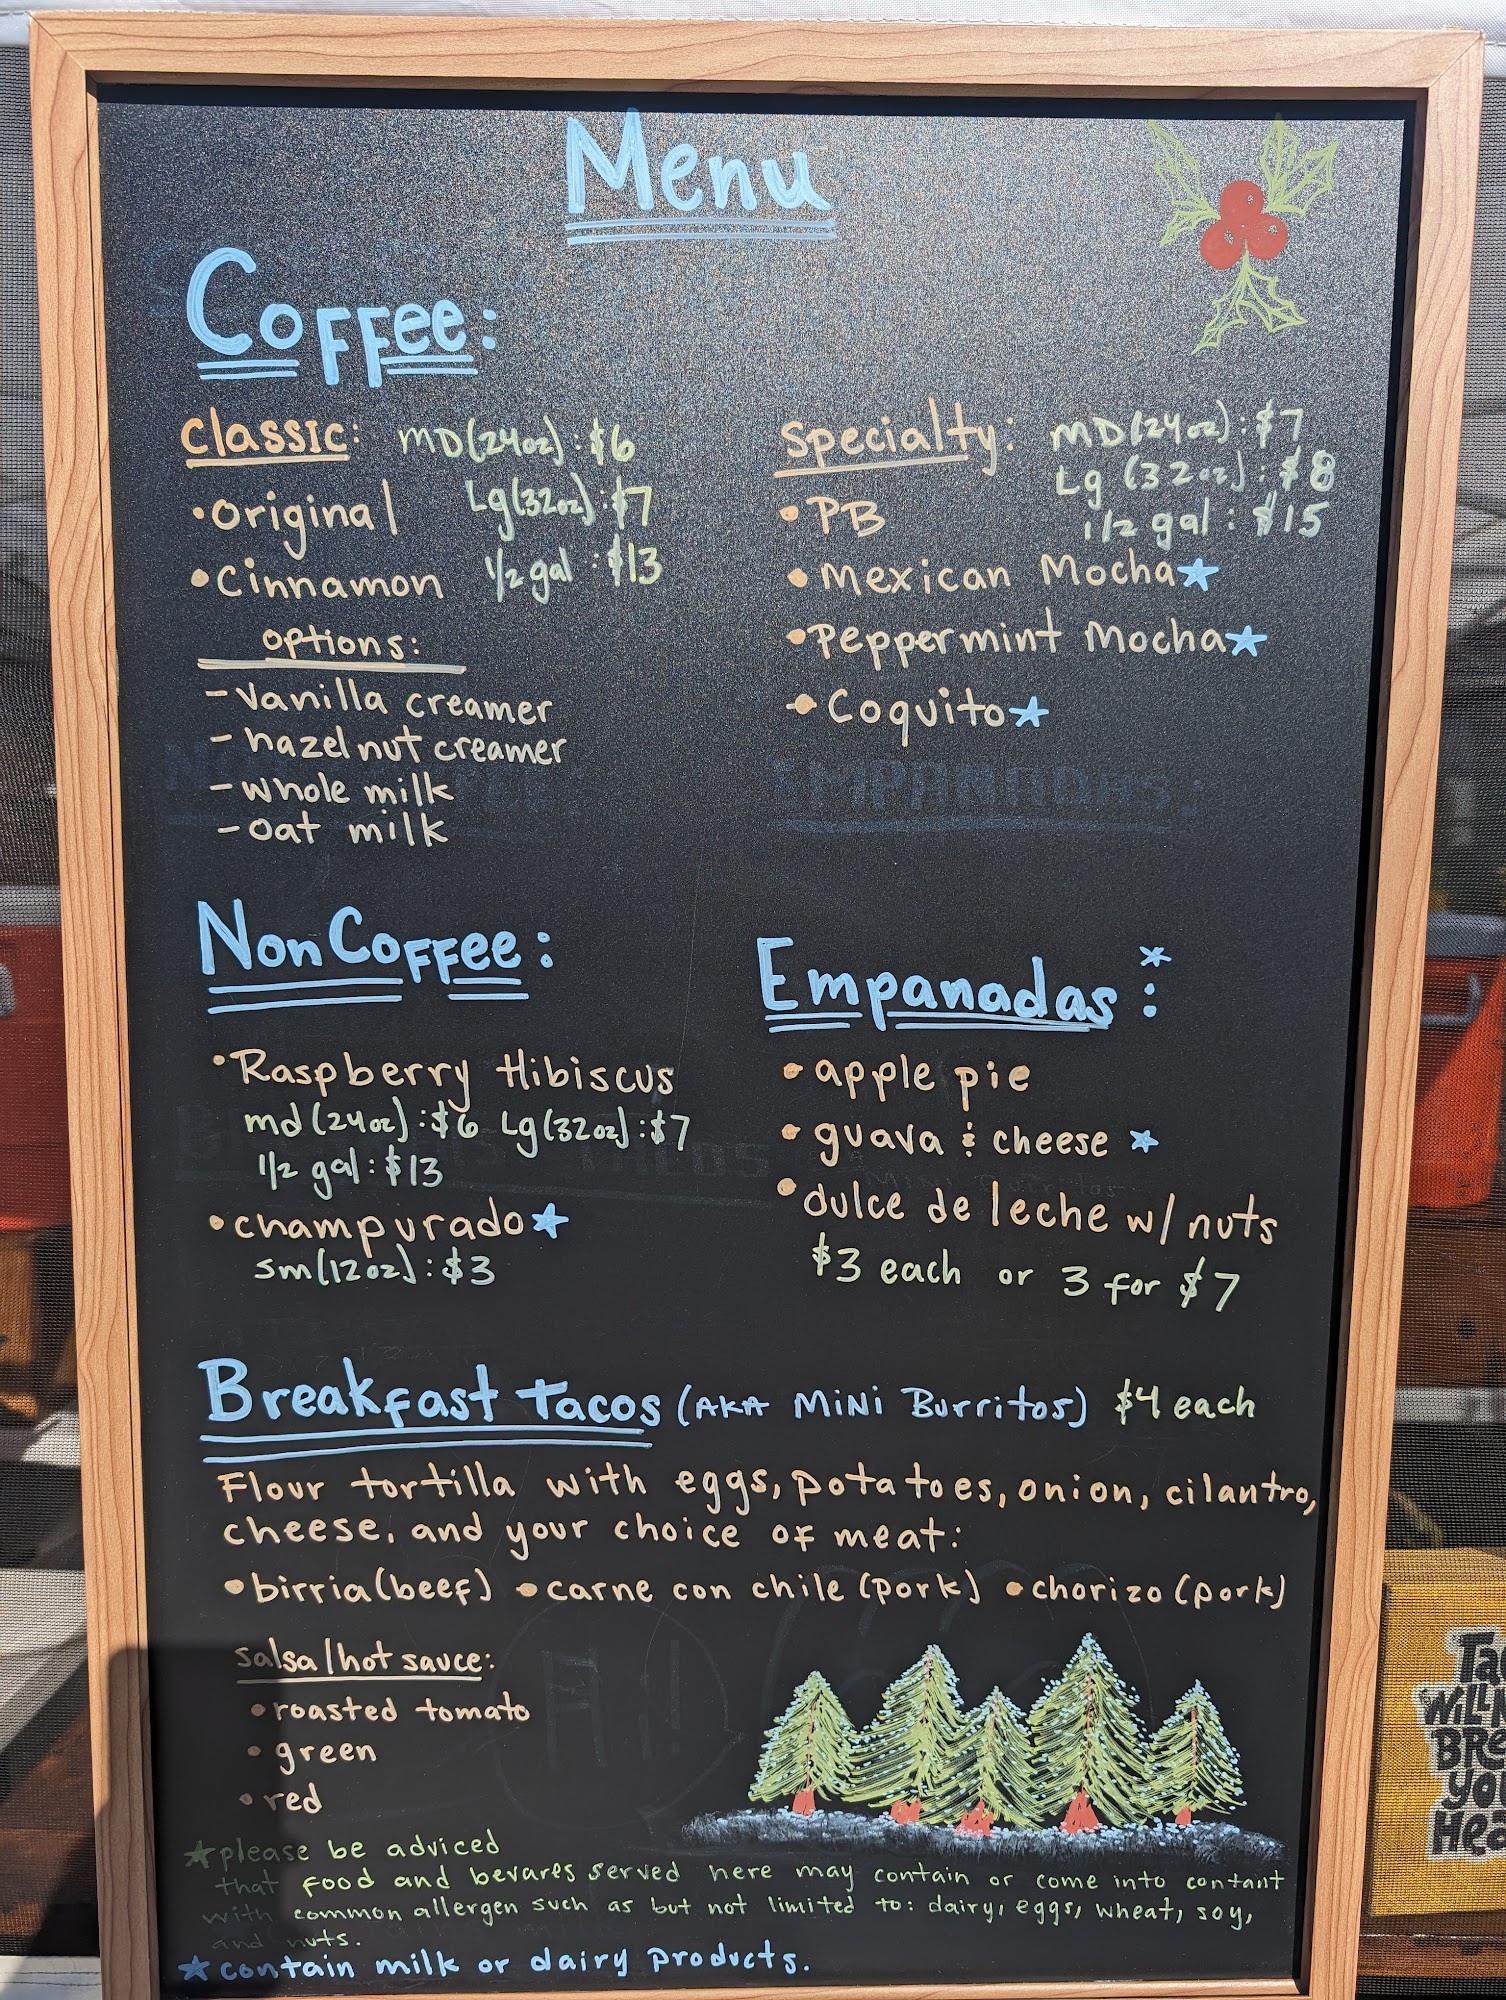 Menu
Coffee:
Classic: MD(24oz):$6
Lg(32oz):$7
1/2 gal:$13
•Original
•Cinnamon
options:
-vanilla creamer
-hazelnut creamer
-whole milk
-oat milk
Specialty: MD(24oz):$7
Lg (32oz):$8
1/2 gal:$15
•PB
•Mexican Mocha★
•Peppermint Mocha★
•Coquito★
Non Coffee:
•Raspberry Hibiscus
md(24oz):$6 Lg(32oz):$7
1/2 gal:$13
•champurado★
sm(12oz):$3
EMPANADAS:
Empanadas*:
•apple pie
•guava & cheese★
•dulce de leche w/ nuts
$3 each or 3 for $7
TACOS
Breakfast Tacos (AKA Mini Burritos) $4 each
Flour tortilla with eggs, potatoes, onion, cilantro,
cheese, and your choice of meat:
•birria(beef) •carne con chile(pork) •chorizo(pork)
salsa/hot sauce:
•roasted tomato
•green
•red
Hi!
★please be adviced
that food and bevares served here may contain or come into contant
with common allergen such as but not limited to: dairy, eggs, wheat, soy,
and nuts.
★contain milk or dairy products.
WILL
YOU